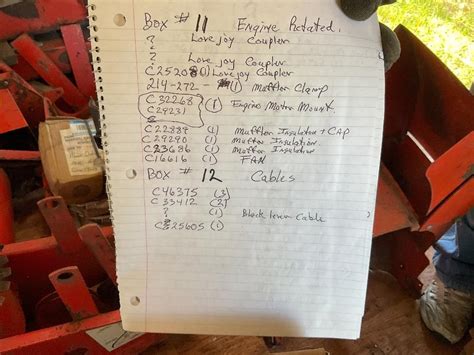 Box # 11 Engine Related.
? Lovejoy Coupler
? Lovejoy Coupler
C25208 (1) Lovejoy Coupler
214-272- (1) Muffler Clamp
C32268 (1) Engine Motor Mount
C29231
C22889 (1) Muffler Insulator + CAP
C29290 (1) Muffler Insulation
C23686 (1) Muffler Insulation
C16616 (1) FAN
Box # 12 Cables
C46375 (3)
C33412 (2)
? (1) Black lever Cable
C25605 (1)